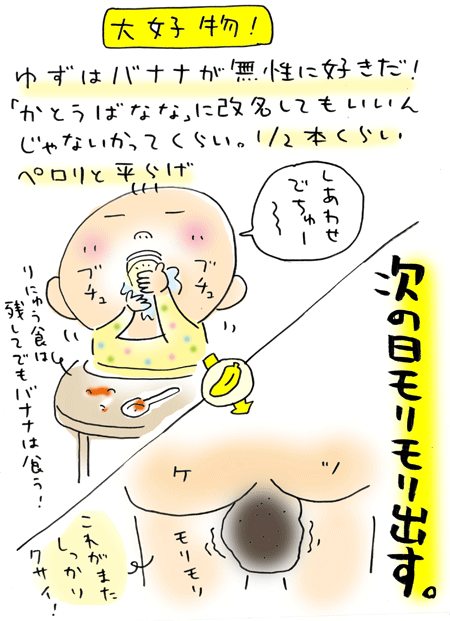 大好物！
ゆずはバナナが無性に好きだ！
「かとうばなな」に改名してもいいん
じゃないかってくらい。1/2本くらい
ペロリと平らげ
しあわせ
でちゅー
〜〜
ブチュ
ブチュ
りにゅう食は
残してでもバナナは食う！
次の日モリモリ出す。
ケツ
モリモリ
これがまた
しっかり
クサイ！